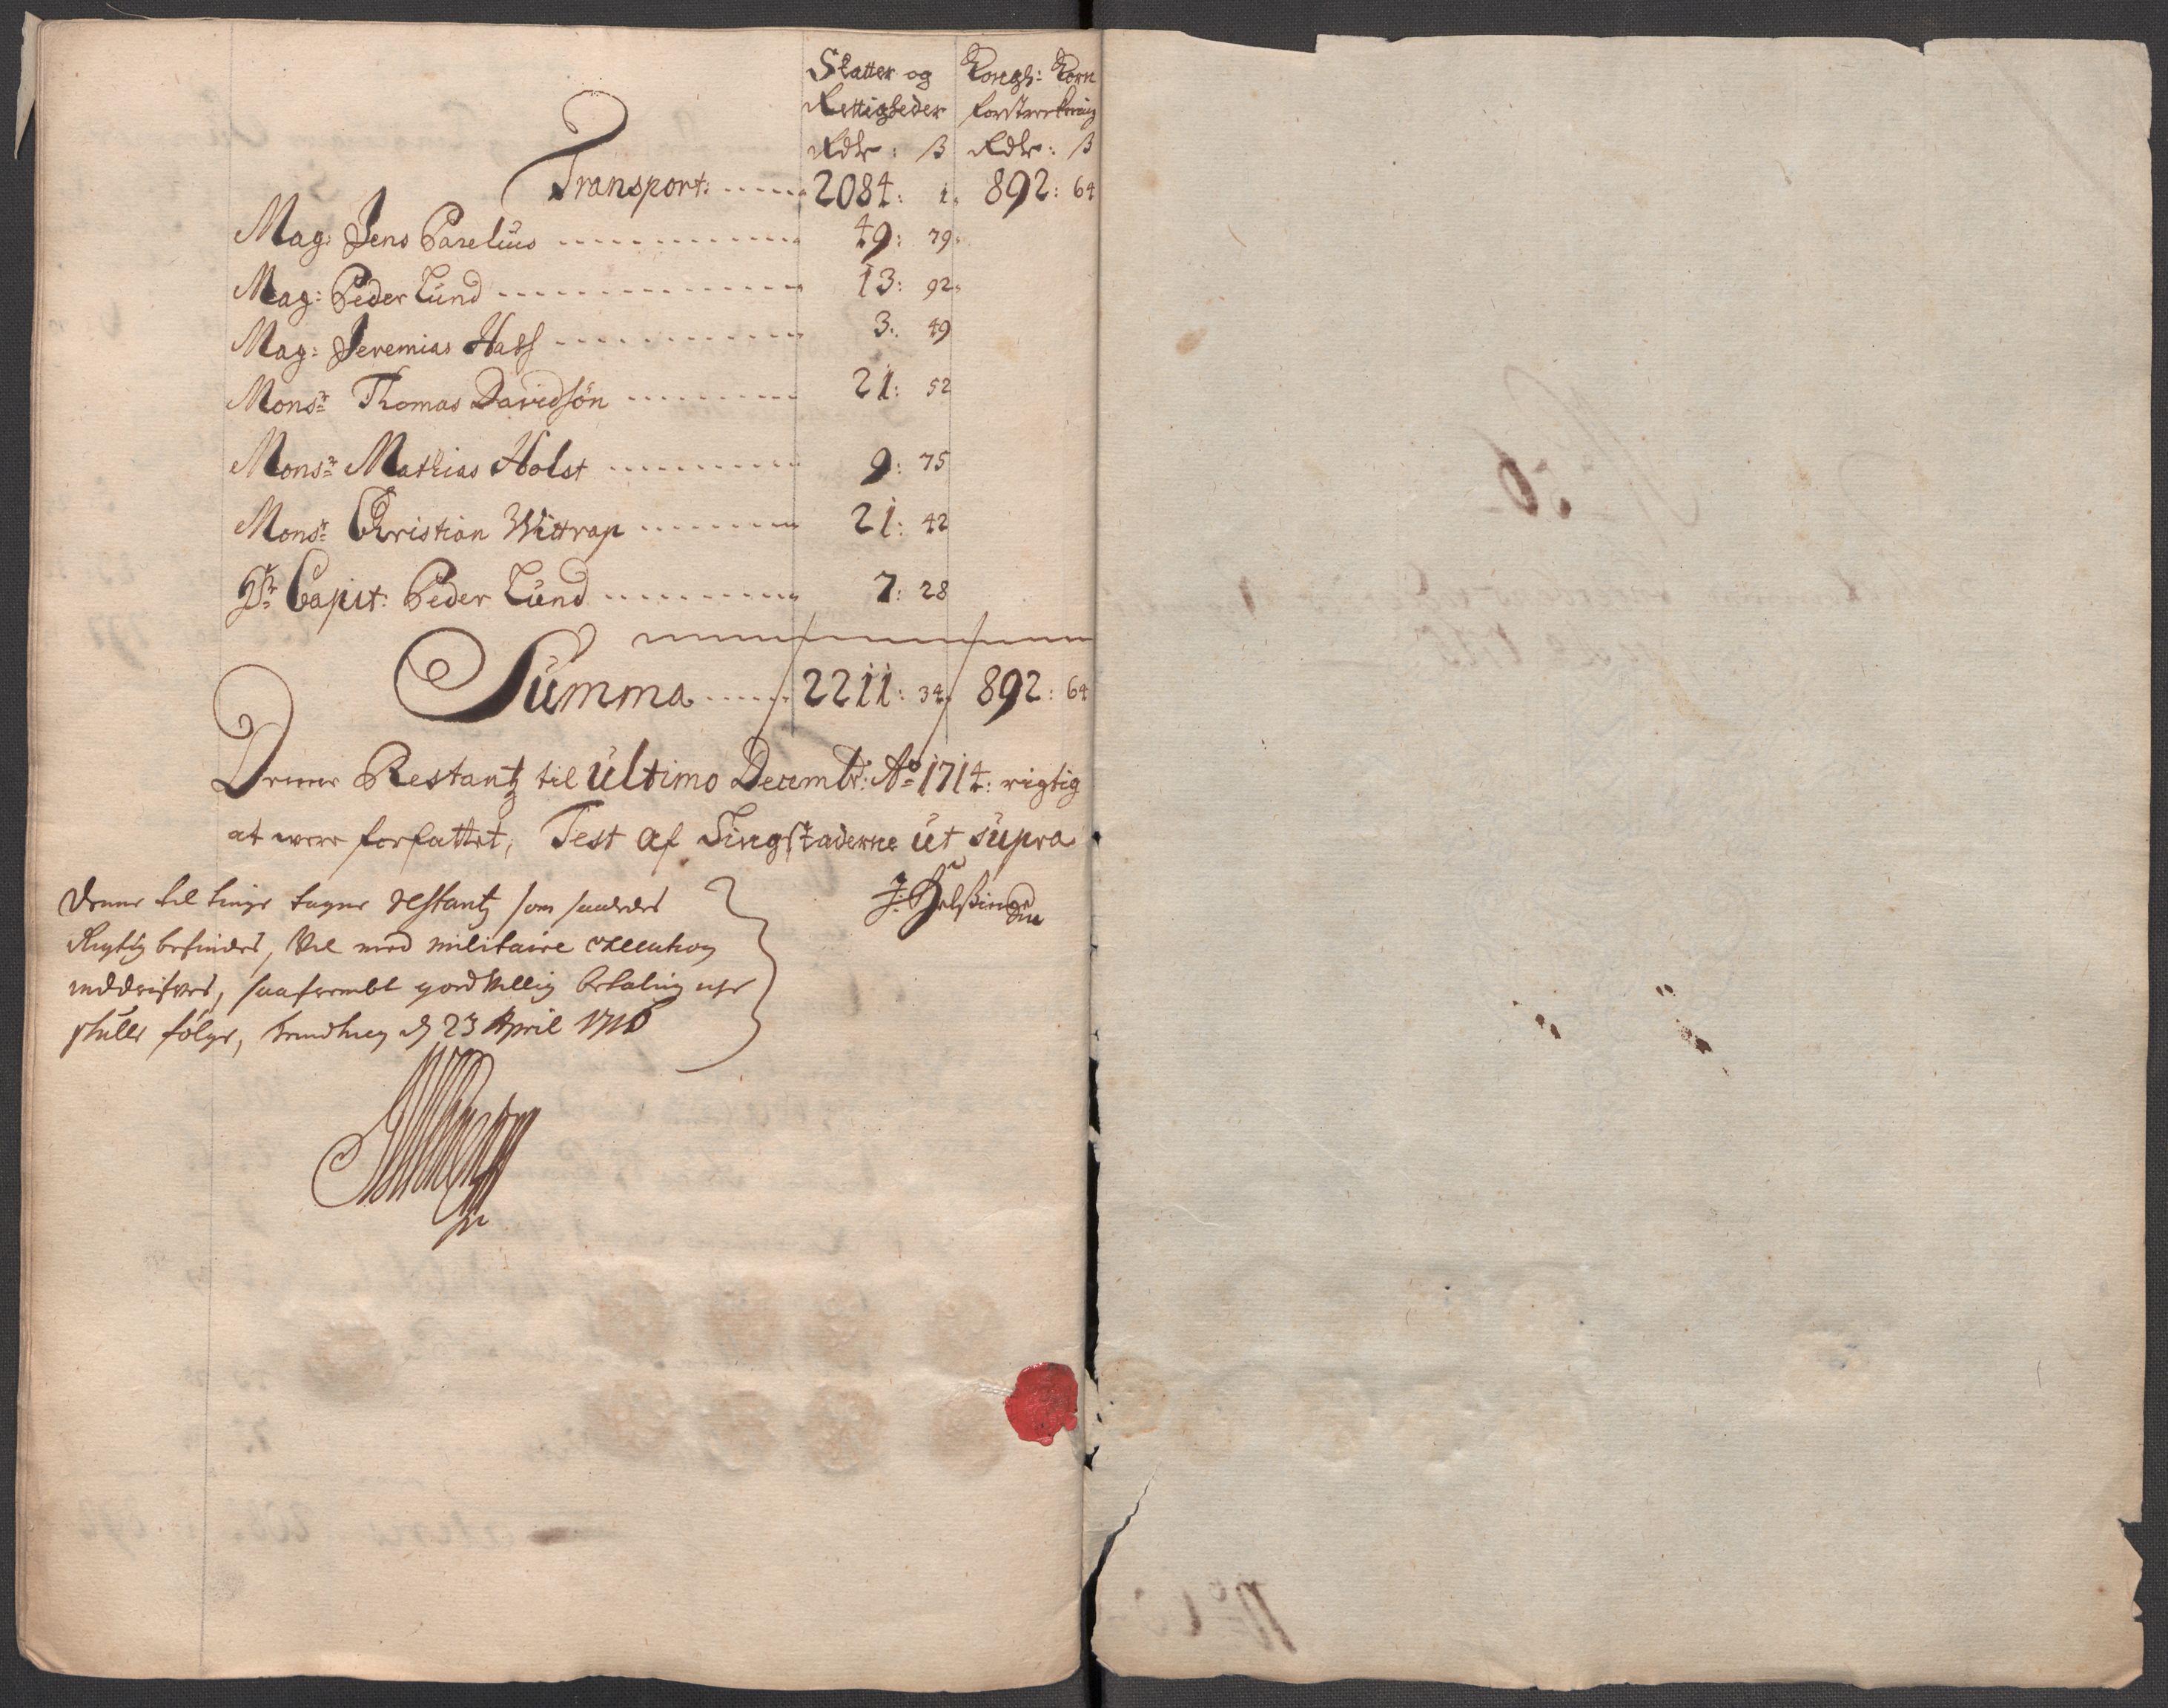 Skatter og Kongl: Korn
Rettigheder forstrekning
Rdlr: ß Rdlr: ß
Transport: 2084: 1, 892: 64
Mag: Jens Parelius 49: 79
Mag: Peder Lund 13: 92
Mag: Jeremias Hass 3: 49
Monsr Thomas Davidsøn 21: 52
Monsr Mathias Holst 9: 75
Monsr Christian Wittrap 21: 42
Hr Capit: Peder Lund 7: 28
Summa 2211: 34, 892: 64
Denne Restantz til ultimo Decembr: Ao 1714: rigtig
at were forfattet, Test af Tingstæderne ut supra
Denne til tinge tagne restantz som saaledes
Rigtig befindes, Vil med militaire execution
inddrifves, saafremt godvillig betaling icke
skulle følge, d 23 April 1716